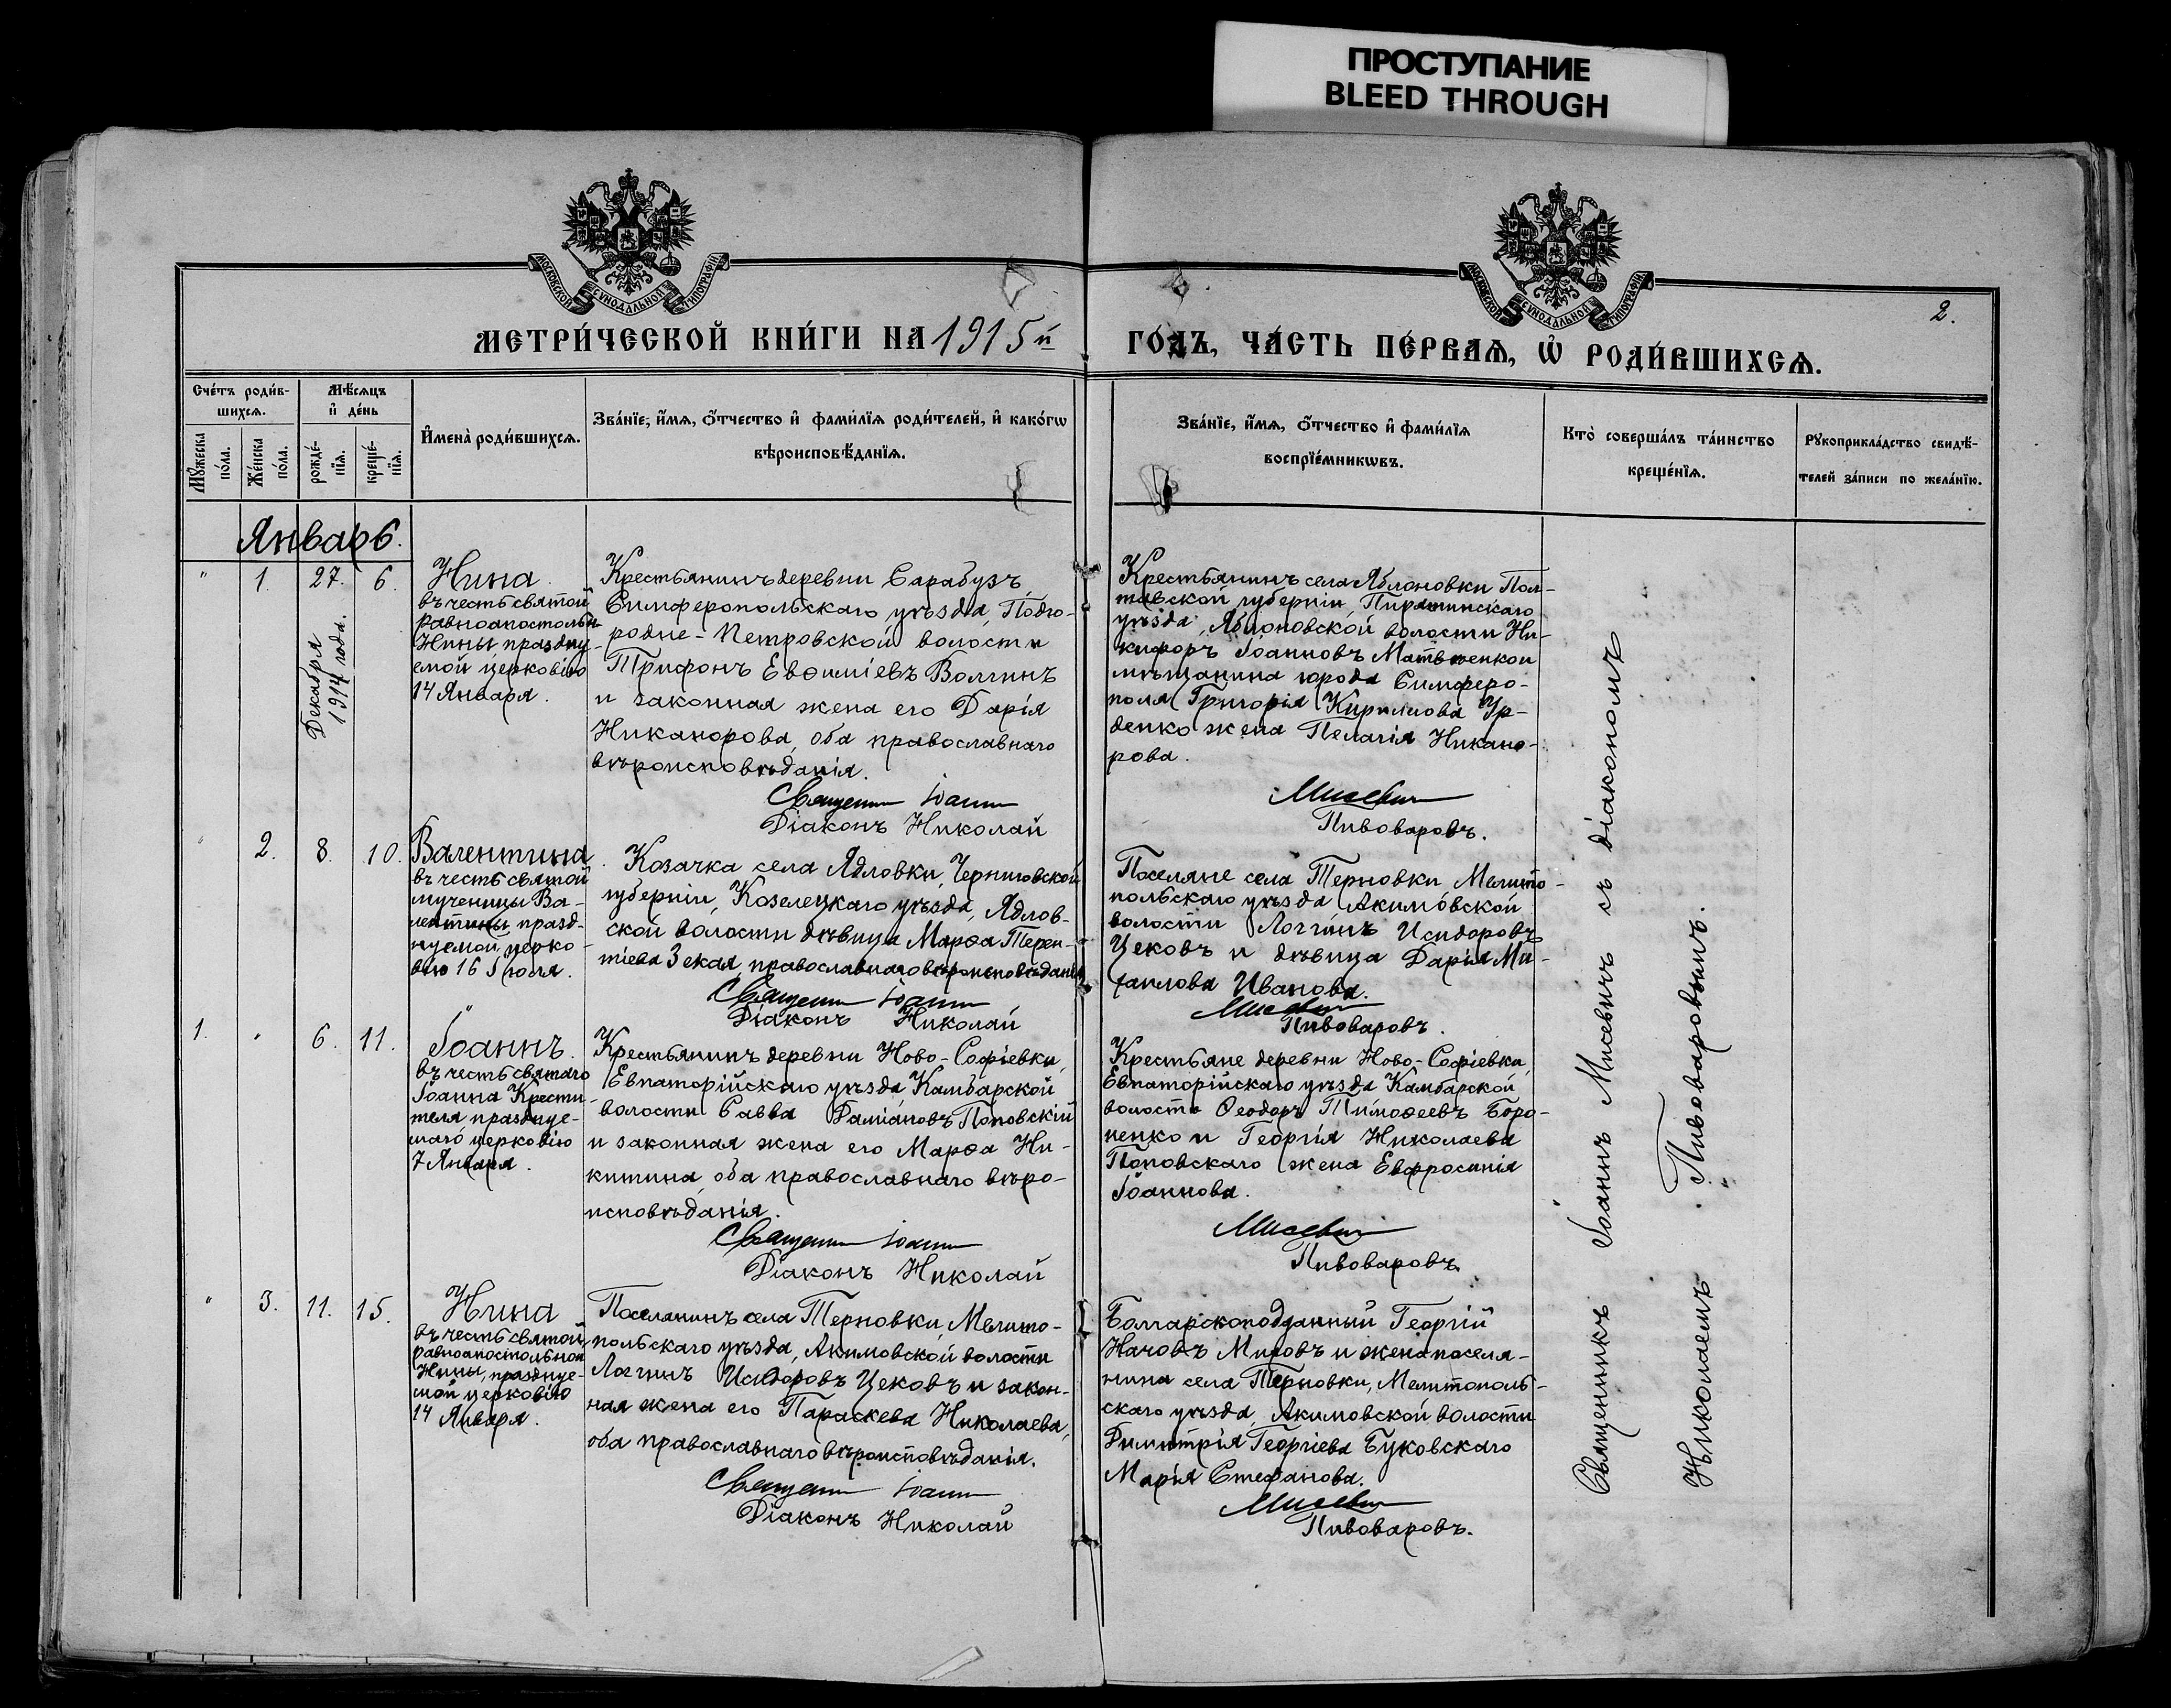 ПРОСТУПАНИЕ
BLEED THROUGH
МОСКОВСКОЙ СѴНОДАЛЬНОЙ ТИПОГРАФІИ
МОСКОВСКОЙ СѴНОДАЛЬНОЙ ТИПОГРАФІИ
2.
МЕТРИ́ЧЕСКОЙ КНИ́ГИ НА 1915 й
ГО́ДЪ, ЧА́СТЬ ПЕ́РВАѦ, Ѡ҆ РОДИ́ВШИХСѦ.
Сче́тъ роди́в-
шихсѧ.
Мѣ́сѧцъ
и҆ де́нь
Мꙋ́жеска
по́ла.
Же́нска
по́ла.
рожде́-
нїѧ.
креще́-
нїѧ.
И҆мена̀ роди́вшихсѧ.
Зва́нїе, и҆́мѧ, ѻ҆́тчество и҆ фами́лїѧ роди́телей, и҆ како́гѡ
вѣроисповѣ́данїѧ.
Зва́нїе, и҆́мѧ, ѻ҆́тчество и҆ фами́лїѧ
воспрїе́мникѡвъ.
Кто̀ соверша́лъ та́инство
креще́нїѧ.
Рꙋкоприкла́дство свидѣ́-
телей за́писи по жела́нїю.
Январь.
" 1. 27. 6.
Декабря
1914 года.
Нина
въ честь святой
равноапостольн
Нины праздну-
емой церковію
14 Января.
Крестьянинъ деревни Сарабузъ,
Симферопольскаго уѣзда, Подго-
родне-Петровской волости
Трифонъ Евѳиміевъ Волгинъ
и законная жена его Дарія
Никанорова, оба православнаго
вѣроисповѣданія.
Священ Іоанн
Діаконъ Николай
Крестьянинъ села Яблоновки Пол-
тавской губерніи, Пирятинскаго
уѣзда, Яблоновской волости Ни-
кифоръ Іоанновъ Матвѣенко и
мѣщанина города Симферо-
поля Григорія Кириллова Ур-
денко жена Пелагія Никано-
рова.
Мисевич
Пивоваровъ.
" 2. 8. 10.
Валентина
въ честь святой
мученицы Ва-
лентины празд-
нуемой церко-
вію 16 Іюля.
Козачка села Ядловки, Черниговской
губерніи, Козелецкаго уѣзда, Ядлов-
ской волости дѣвица Марѳа Терен-
тіева Зекая, православнаго вѣроисповѣданія
Священ Іоанн
Діаконъ Николай
Поселяне села Терновки, Мелито-
польскаго уѣзда, Акимовской
волости Логгинъ Исидоровъ
Цековъ и дѣвица Дарія Ми-
хаилова Иванова.
Мисевич
Пивоваровъ.
1. " 6. 11.
Іоаннъ.
въ честь святаго
Іоанна Крести-
теля, празднуе-
маго церковію
7 Января.
Крестьянинъ деревни Ново-Софіевки,
Евпаторійскаго уѣзда Камбарской
волости Савва Даміановъ Поповскій
и законная жена его Марѳа Ни-
китина, оба православнаго вѣро-
исповѣданія.
Священ Іоанн
Діаконъ Николай
Крестьяне деревни Ново-Софіевки,
Евпаторійскаго уѣзда Камбарской
волости Ѳеодоръ Тимоѳеевъ Боро-
ненко и Георгія Николаева
Поповскаго жена Евфросинія
Іоаннова.
Мисевич
Пивоваровъ.
" 3. 11. 15.
Нина
въ честь святой,
равноапостольной
Нины, празднуе-
мой церковію
14 Января.
Поселянинъ села Терновки, Мелито-
польскаго уѣзда, Акимовской волости
Логгинъ Исидоровъ Цековъ и закон-
ная жена его Параскева Николаева,
оба православнаго вѣроисповѣданія.
Священ Іоанн
Діаконъ Николай
Болгарскоподданный Георгій
Начовъ Мировъ и жена поселя-
нина села Терновки, Мелитополь-
скаго уѣзда, Акимовской волости
Димитрія Георгіева Буковскаго
Марія Стефанова.
Мисевич
Пивоваровъ.
Священникъ Іоаннъ Мисевичъ съ діакономъ
Николаемъ Пивоваровымъ.